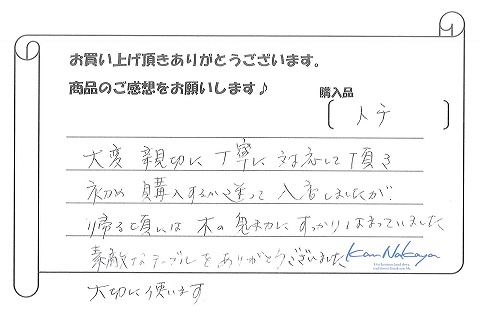 お買い上げ頂きありがとうございます。
商品のご感想をお願いします♪
購入品
[ トチ ]
大変 親切に 丁寧に 対応して頂き
初め 購入するか迷って 入店しましたが
帰る頃には 木の魅力に すっかりはまっていました
素敵なテーブルを ありがとうございました
Kan Nakaya
大切に使います